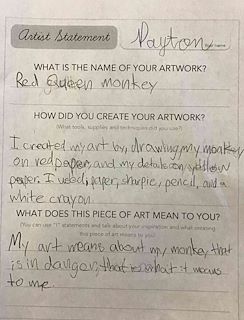 Artist Statement Paytron
your name
WHAT IS THE NAME OF YOUR ARTWORK?
Red Queen monkey
HOW DID YOU CREATE YOUR ARTWORK?
(What tools, supplies and techniques did you use?)
I created my art by, drawing my monkey
on red paper, and my details on yellow
peper. I used, paper, sharpie, pencil, and a
white crayon.
WHAT DOES THIS PIECE OF ART MEAN TO YOU?
(You can use "I" statements and talk about your inspiration and what creating
this piece of art means to you)
My art means about my monkey that
is in dangor, that is what it means
to me.